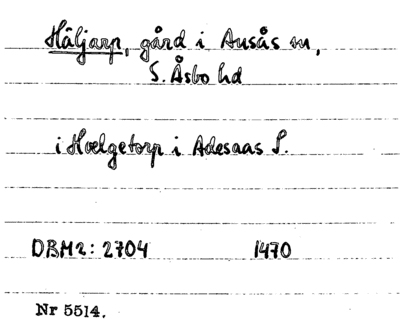 Häljarp, gård i Ausås sn,
S. Åsbo hd
i Hælgetorp i Adesaas S.
DBM2: 2704 1470
Nr 5514.